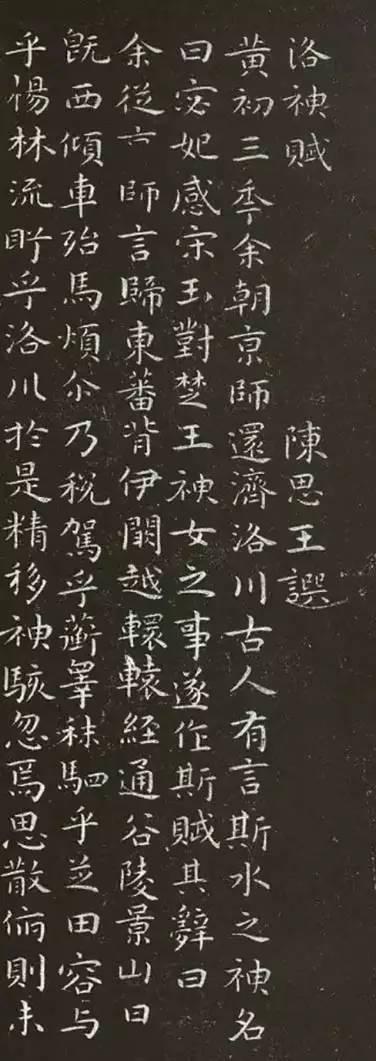 洛神賦 陳思王譔
黄初三秊余朝京師還濟洛川古人有言斯水之神名
曰宓妃感宋玉對楚王神女之事遂作斯賦其辭曰
余從師言歸東蕃背伊闕越轘轅經通谷陵景山日
既西傾車殆馬煩尒乃税駕乎蘅睾秣駟乎芝田容与
乎楊林流眄乎洛川於是精移神駭忽焉思散俯則未